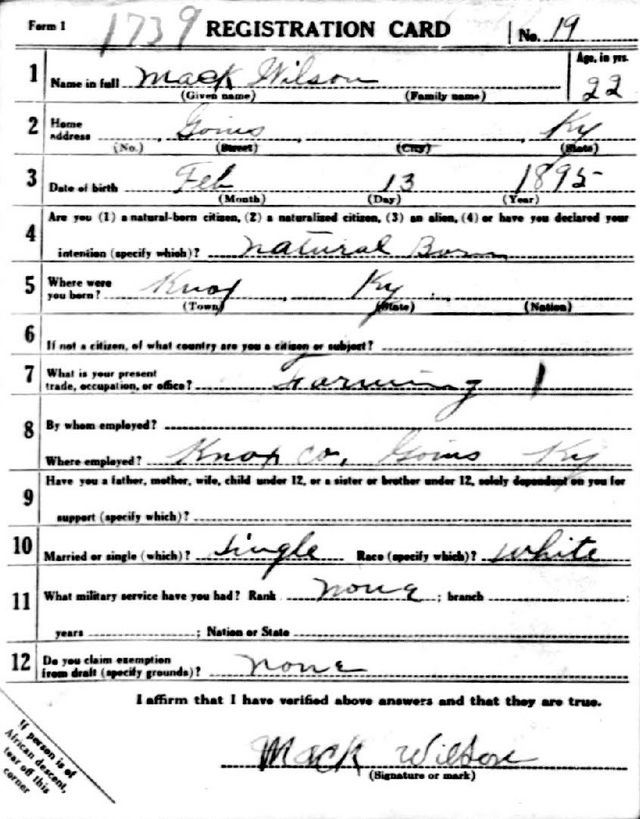 Form 1 1739 REGISTRATION CARD No. 19
1 Name in full Mack Wilson Age, in yrs.
(Given name) (Family name) 22
2 Home address Goins Ky
(No.) (Street) (City) (State)
3 Date of birth Feb 13 1895
(Month) (Day) (Year)
4 Are you (1) a natural-born citizen, (2) a naturalized citizen, (3) an alien, (4) or have you declared your
intention (specify which)? Natural Born
5 Where were you born? Knox, Ky.
(Town) (State) (Nation)
6 If not a citizen, of what country are you a citizen or subject?
7 What is your present
trade, occupation, or office? Farming 1
8 By whom employed?
Where employed? Knox Co, Goins Ky
9 Have you a father, mother, wife, child under 12, or a sister or brother under 12, solely dependent on you for
support (specify which)?
10 Married or single (which)? Single Race (specify which)? White
11 What military service have you had? Rank None ; branch
years ; Nation or State
12 Do you claim exemption
from draft (specify grounds)? None
I affirm that I have verified above answers and that they are true.
If person is of
African descent,
tear off this
corner
Mack Wilson
(Signature or mark)